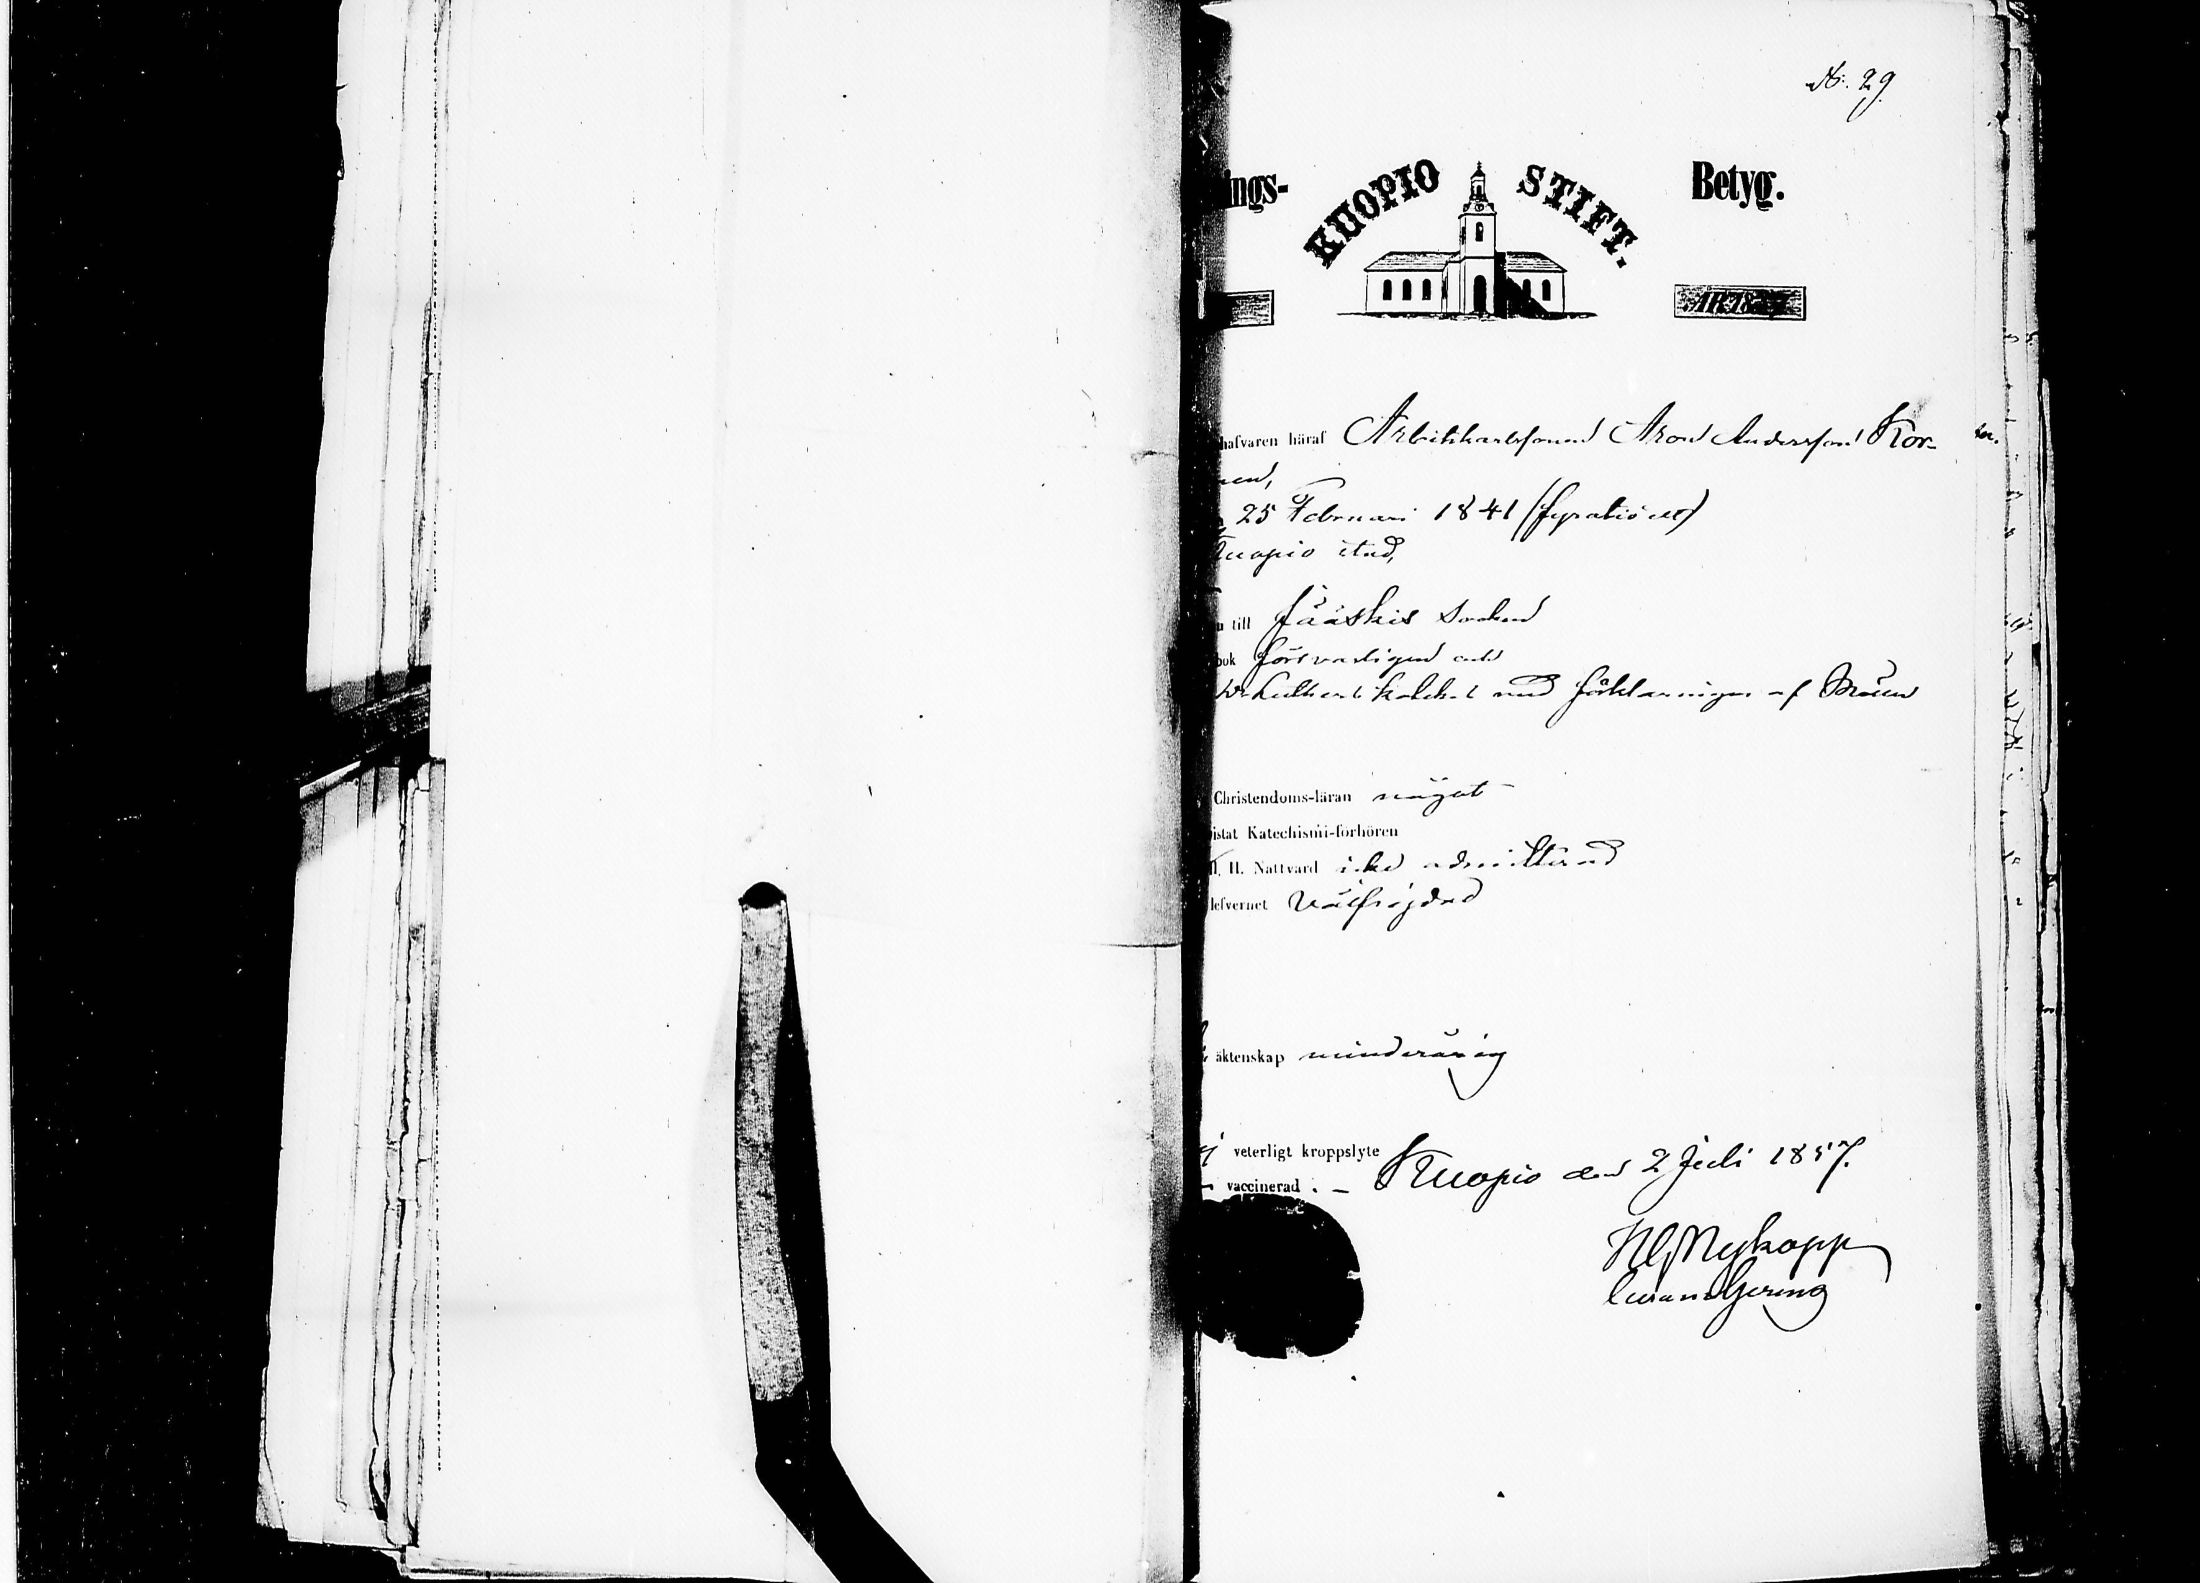 No. 29.
ings- KUOPIO STIFT. Betyg.
ÅR 1857
hafvaren häraf Arbetskarlssonen Aron Andersson Kor-
nen,
25 Februari 1841 (fyratioett)
Kuopio stad,
n till Jääskis Socken
bok försvarligen
Lutheri kateket med förklaringen af
Christendoms-läran något
istat Katechismi-förhören
H. Nattvard icke admitterad
lefvernet välfrejdad
äktenskap minderårig
ej veterligt kroppslyte
vaccinerad. – Kuopio den 2 Juli 1857.
Nykopp